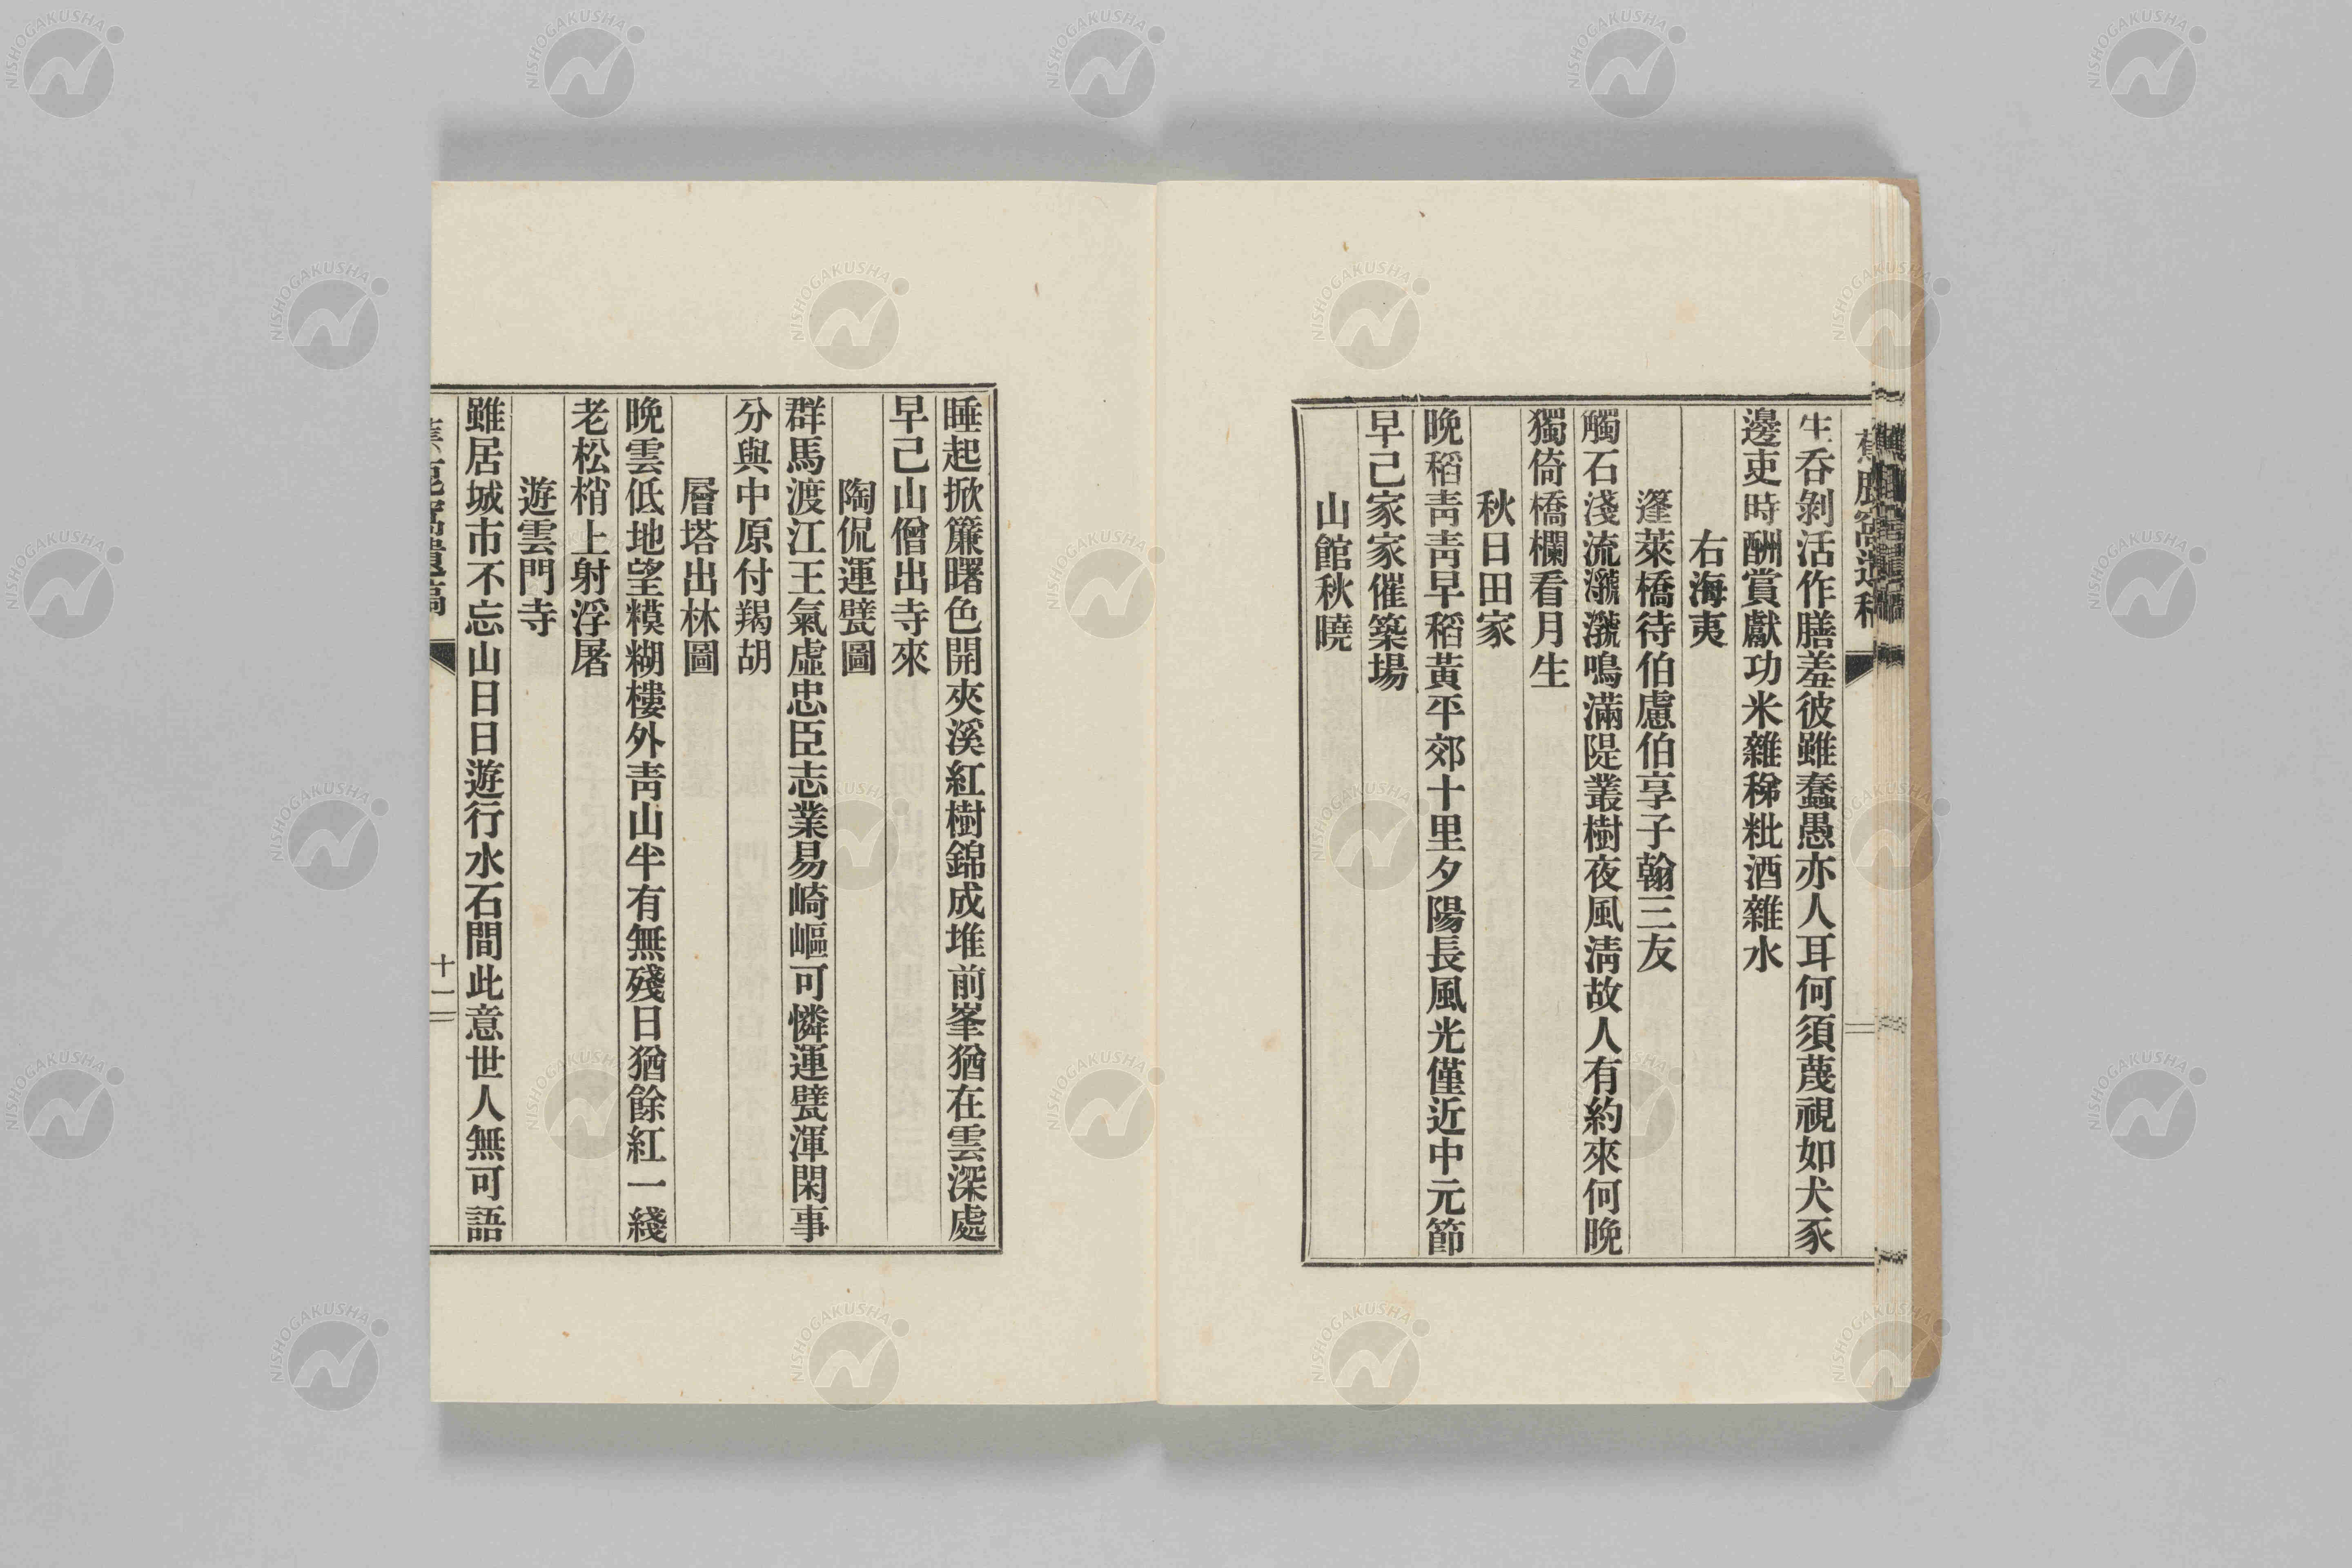 生呑剝活作膳羞彼雖蠢愚亦人耳何須蔑視如犬豕
邊吏時酬賞獻功米雜稊粃酒雜水
右海夷
篷萊橋待伯慮伯享子翰三友
觸石淺流㶁㶁鳴滿隄叢樹夜風淸故人有約來何晚
獨倚橋欄看月生
秋日田家
晚稻靑靑早稻黃平郊十里夕陽長風光僅近中元節
早已家家催築場
山館秋曉
睡起掀簾曙色開夾溪紅樹錦成堆前峯猶在雲深處
早已山僧出寺來
陶侃運甓圖
群馬渡江王氣虛忠臣志業易崎嶇可憐運甓渾閑事
分與中原付羯胡
層塔出林圖
晚雲低地望糢糊樓外靑山半有無殘日猶餘紅一綫
老松梢上射浮屠
遊雲門寺
雖居城市不忘山日日遊行水石間此意世人無可語
十一
NISHOGAKUSHA